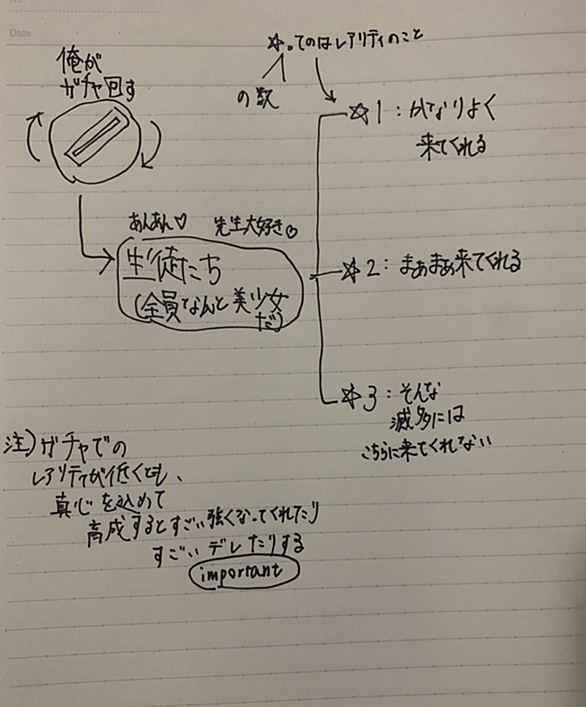 No
Date
俺が
ガチャ回す
☆。てのはレアリティのこと
の数
☆1：かなりよく
来てくれる
あんあん♡ 先生大好き♡
生徒たち
(全員なんと美少女
だ)
☆2：まぁまぁ来てくれる
☆3：そんな
滅多には
こちらに来てくれない
注)ガチャでの
レアリティが低くとも、
真心を込めて
育成するとすごい強くなってくれたり
すごいデレたりする
important